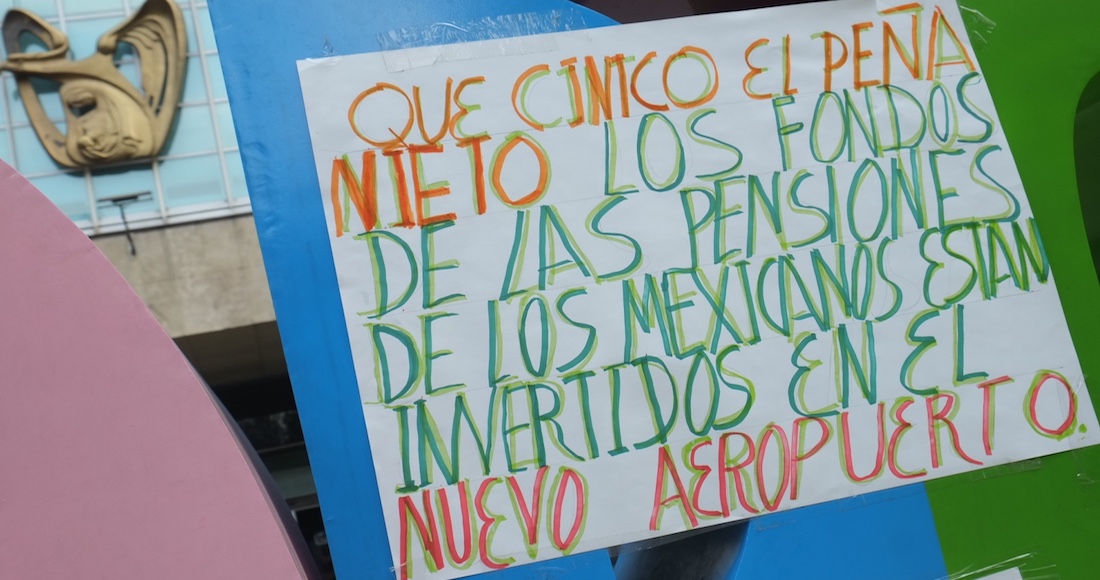 QUE CINICO EL PEÑA
NIETO LOS FONDOS
DE LAS PENSIONES
DE LOS MEXICANOS ESTAN
INVERTIDOS EN EL
NUEVO AEROPUERTO.